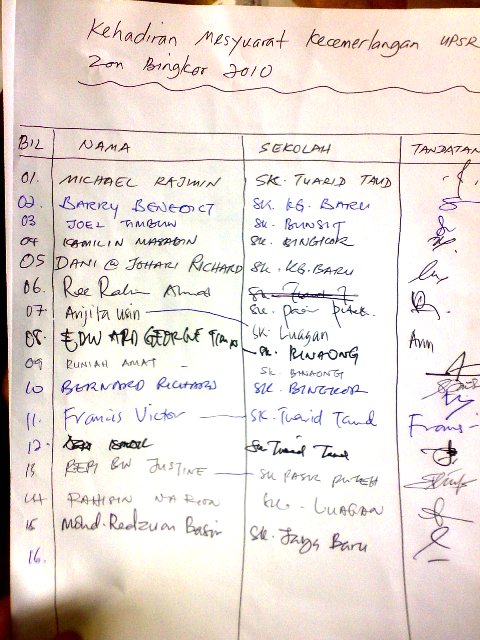 Kehadiran Mesyuarat Kecemerlangan UPSR
Zon Bingkor 2010
BIL NAMA SEKOLAH TANDATAN
01. MICHAEL RAJMIN SK. TUARID TAUD
02. BARRY BENEDICT SK. KG. BARU
03 JOEL SK. BUNSIT
04 SK. BINGKOR
05 DANI @ JOHARI RICHARD SK. KG. BARU
06. SK. Tuarid T
07 Anjita SK. Pasir
08. EDWARD GEORGE SK. Luagan Ann
SK. BINAONG
09 RUNIAH AMAT - SK. BINAONG
10 BERNARD RICHARD SK. BINGKOR
11. Francis Victor SK. Tuarid Taud Frans
12. SK Tuarid Taud
13 JUSTINE SK PASIR PUTEH
14 SK. LUAGAN
15 Mohd. Redzuan Basir SK. Jaya Baru
16.